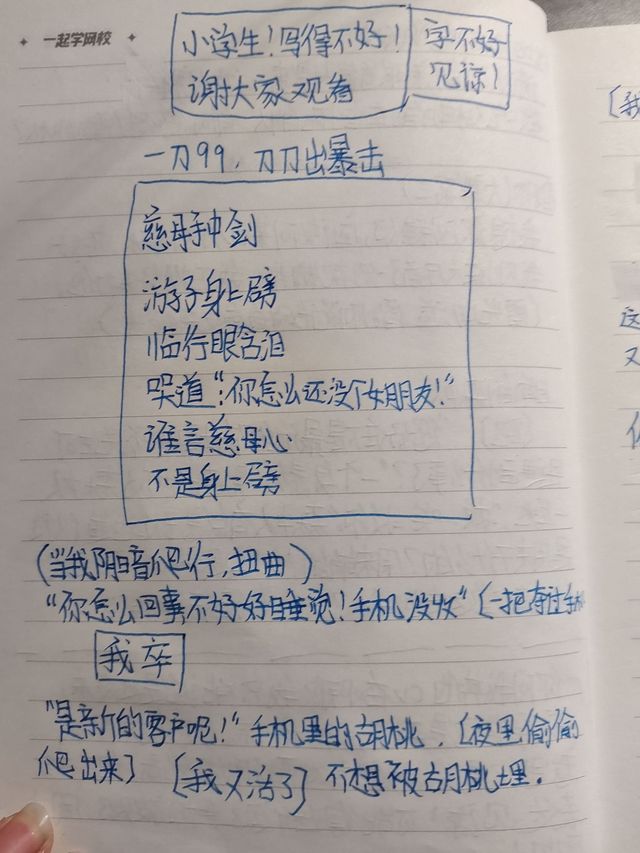 一起学网校
小学生！写得不好！
谢大家观看
字不好
见谅！
一刀99，刀刀出暴击
慈母手中剑
游子身上劈
临行眼含泪
哭道“你怎么还没个女朋友！”
谁言慈母心
不是身上劈
（当我阴暗爬行，扭曲）
“你怎么回事不好好睡觉！手机没收”（一把夺过手机
我卒
“是新的客户呢！”手机里的胡桃．〔夜里偷偷
爬出来〕〔我又活了〕不想被胡桃埋．
（我
这
又